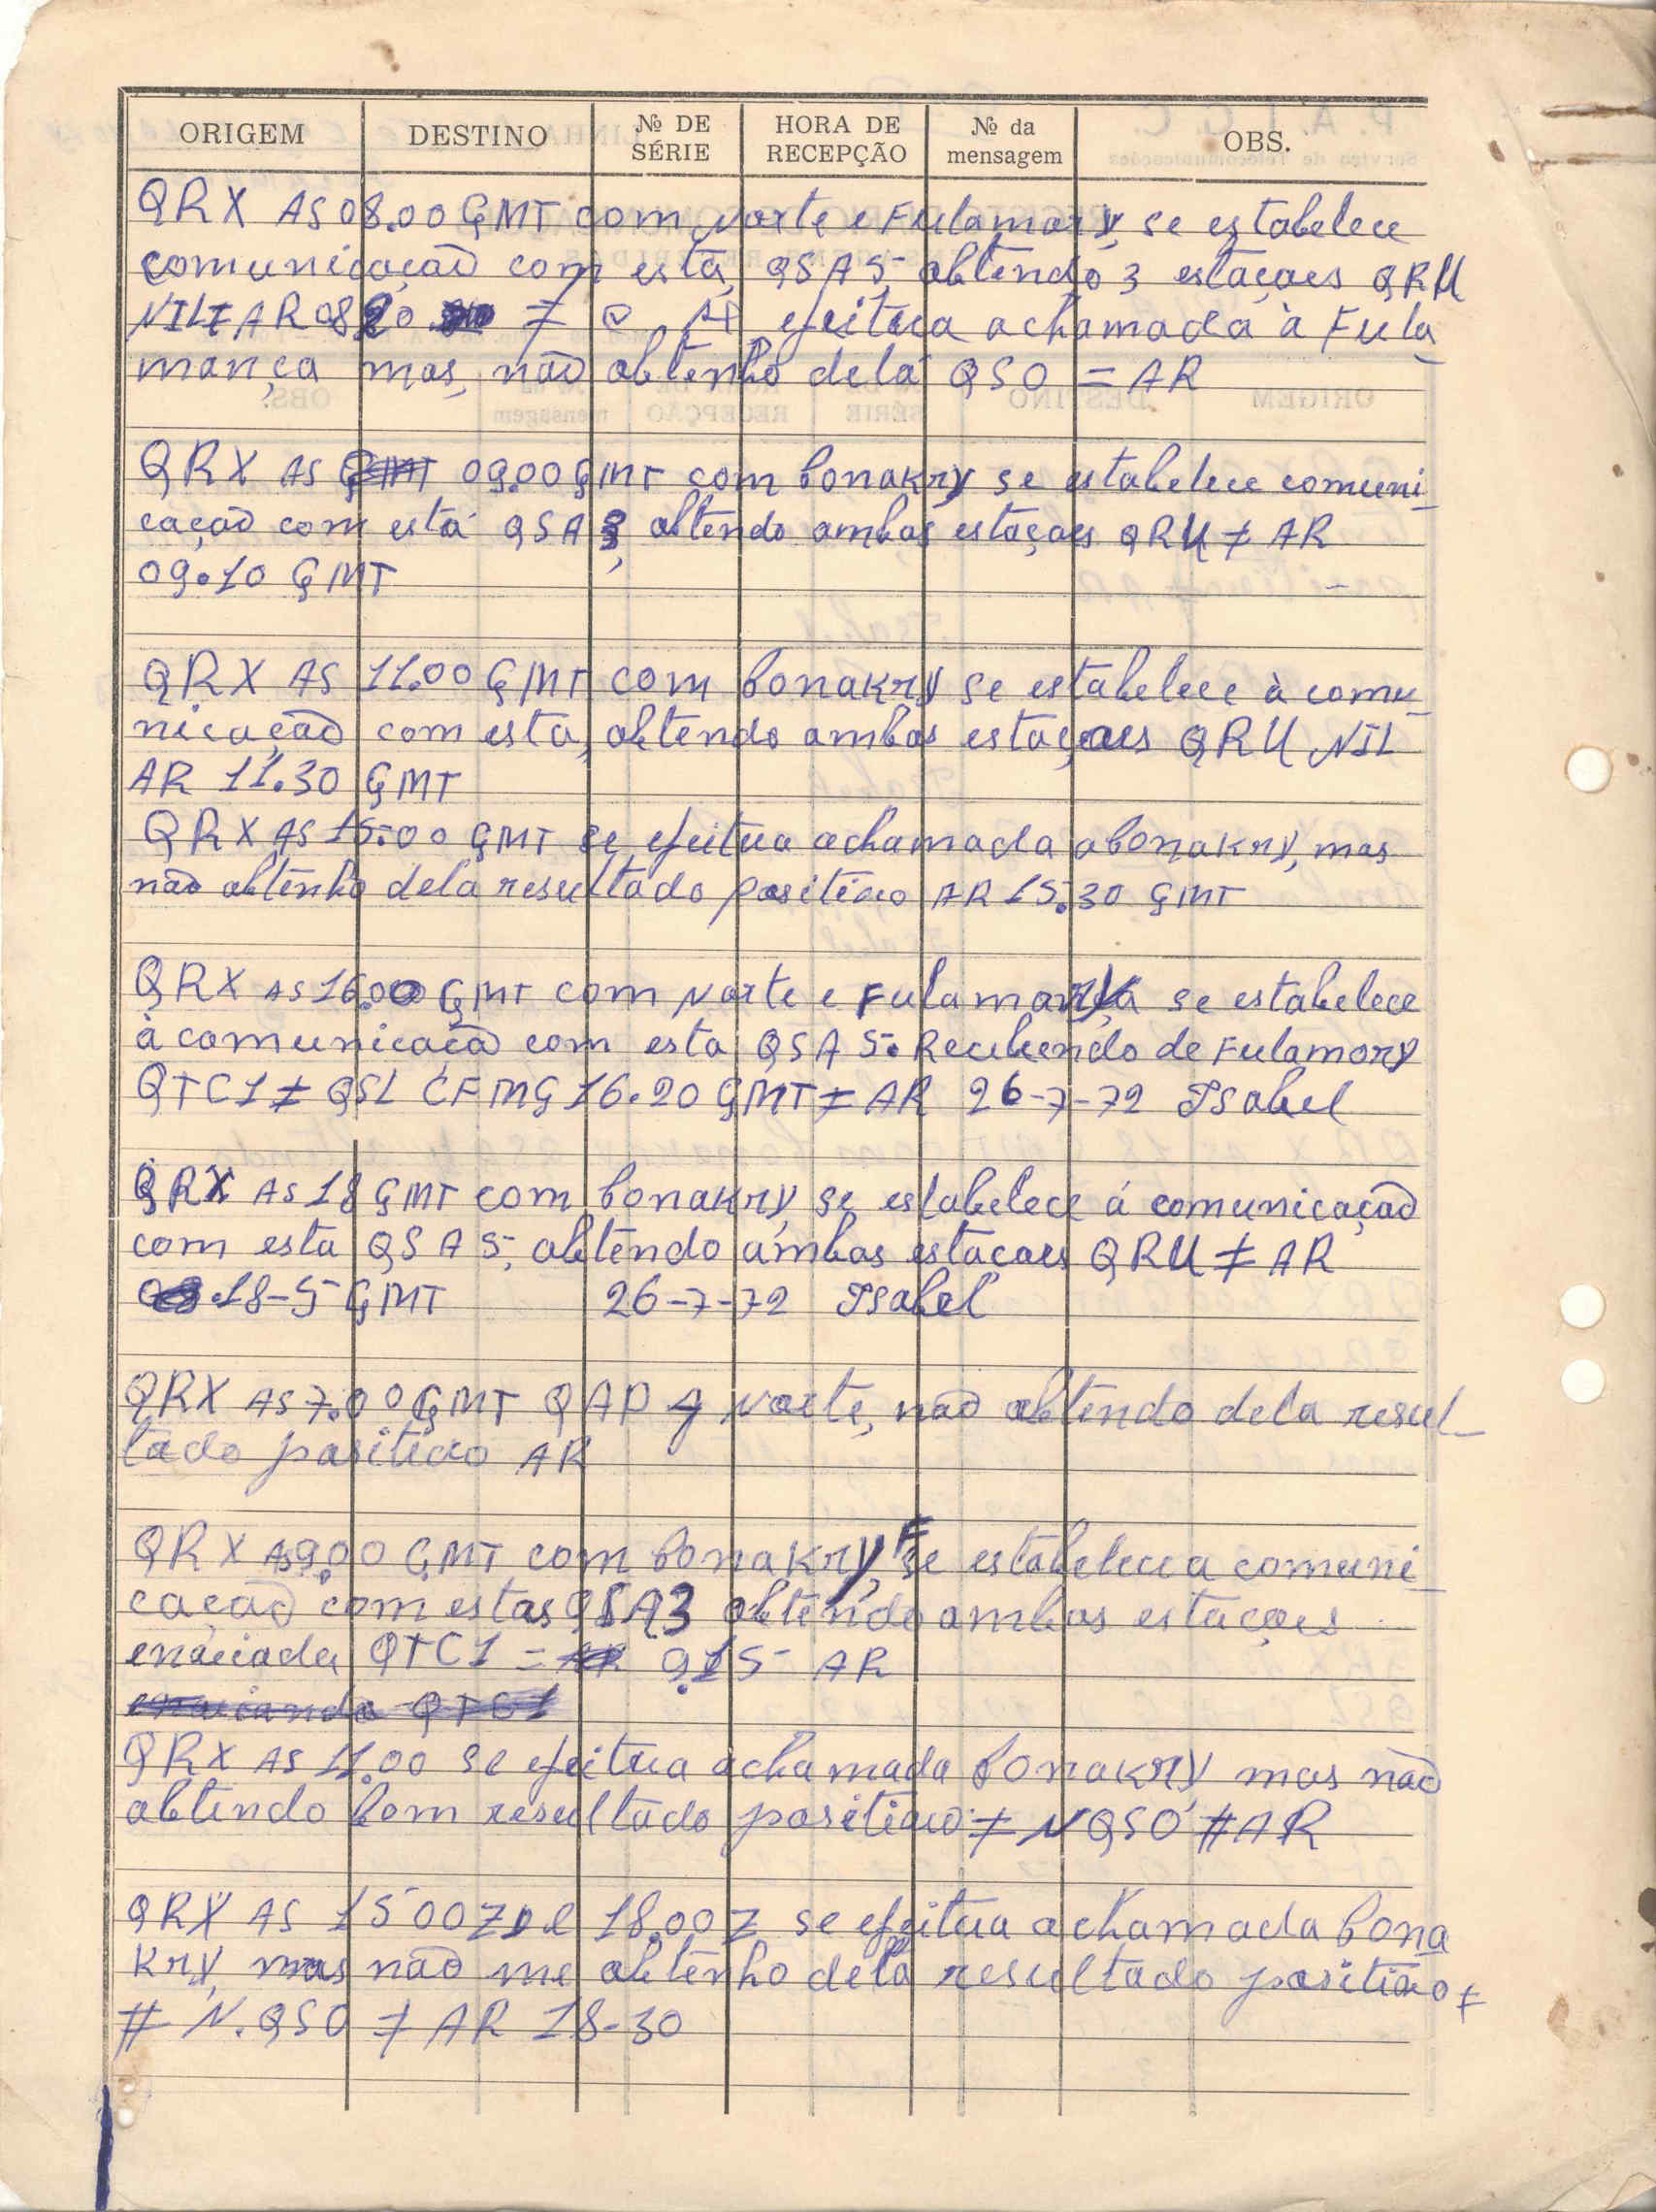 ORIGEM DESTINO Nº DE SÉRIE HORA DE RECEPÇÃO Nº da mensagem OBS.
QRX AS 08.00 GMT com Norte e Fulamory, se estabelece
comunicação com esta, QSA 5, obtendo 3 estaçoes QRU
NIL ≠ AR 0820 ≠ efeitua a chamada à Fula_
mança mas, não obtenho dela QSO = AR
QRX AS GMT 09.00 GMT com Conakry se estabelece comuni_
cação com está QSA 3, obtendo ambas estaçoes QRU ≠ AR
09.10 GMT
QRX AS 11.00 GMT com Conakry se estabelece à comu_
nicação com esta, obtendo ambas estaçoes QRU NIL
AR 11.30 GMT
QRX AS 15.00 GMT se efeitua a chamada a Conakry, mas
não obtenho dela resultado positivo AR 15.30 GMT
QRX AS 16.00 GMT com Norte e Fulamory se estabelece
à comunicação com esta QSA 5. Recebendo de Fulamory
QTC1 ≠ QSL CFMG 16.20 GMT ≠ AR 26-7-72 Isabel
QRX AS 18 GMT com Conakry, se estabelece á comunicação
com esta QSA 5, obtendo ambas estacoes QRU ≠ AR
18-5 GMT 26-7-72 Isabel
QRX AS 7.00 GMT QAP 4 Norte, não obtendo dela resul_
tado positivo AR
QRX AS 9.00 GMT com Conakry, F se estabelece a comuni_
cação com estas QSA3 obtendo ambas estaçoes
enviada QTC1 = AR 9.15 AR
enviando QTC1
QRX AS 11.00 se efeitua a chamada Conakry mas não
obtendo bom resultado positivo ≠ N QSO # AR
QRX AS 1500Z e 18.00Z se efeitua a chamada Cona
kry, mas não me obtenho dela resultado positivo ≠
# N. QSO ≠ AR 18-30